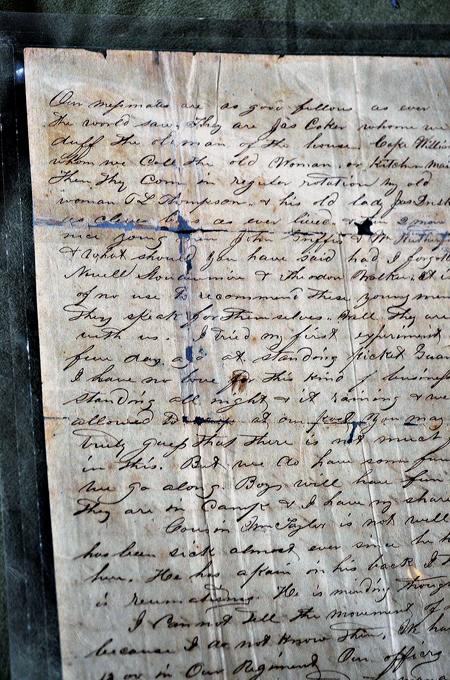 Our messmates are as good fellows as ever
the world saw. They are Jas Coker whome we
duff the old man of the house Capt Willi
whom we Call the old Woman, or Kitchen Mai
Then they Com in regular rotation my old
woman T L Thompson & his old lady Jas
as clever as ever lived &
nice young men John Griffis & W
& What should you have said had I forgot
Newell & Theodore Walker. It is
of no use to recommend these young men
They speak for themselves. Well they are
with us. I tried my first experiment
few days ago at standing picket Guar
I have no love for this kind of business
standing all night & it raining & we
allowed to at our post You may
truly guess that there is not much
in this. But we do have some
we go along. Boys will have fun
they are in Camp & I have my share
Cousin Wm Taylor is not well
has been sick almost ever since he
here. He has a pain in his back I
is reumatism. He is mending though
I Cannot tell the movement of
because I do not know them.
in Our Regiment Our officers